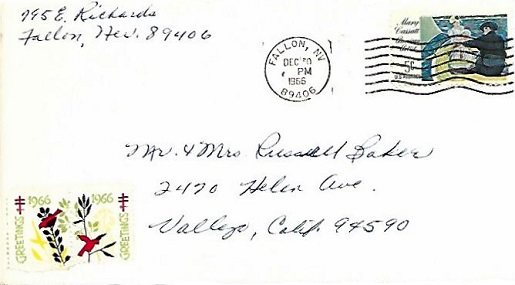 795 E. Richards
Fallon, Nev. 89406
FALLON, NV
DEC 20
PM
1966
89406
Mary
Cassatt
American
Artist
5¢
U.S. POSTAGE
Mr. & Mrs Russell Baker
2420 Helen Ave.
Vallejo, Calif. 94590
1966 1966
GREETINGS GREETINGS